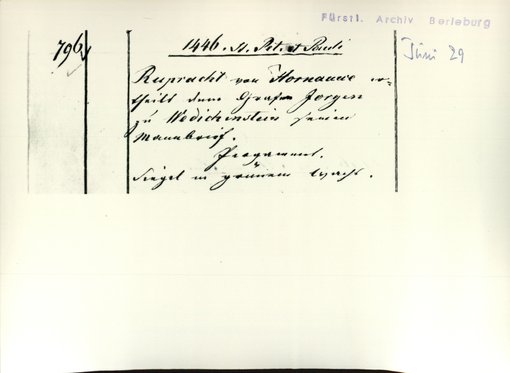 Fürstl. Archiv Berleburg
796
1446. St. Pet. et Pauli
Juni 29
Ruprecht von Hornauwe er-
theilt dem Grafen Jorgen
zu Wedichenstein seinen
Mannbrief.
Pergament.
Siegel in grünem Wachs.